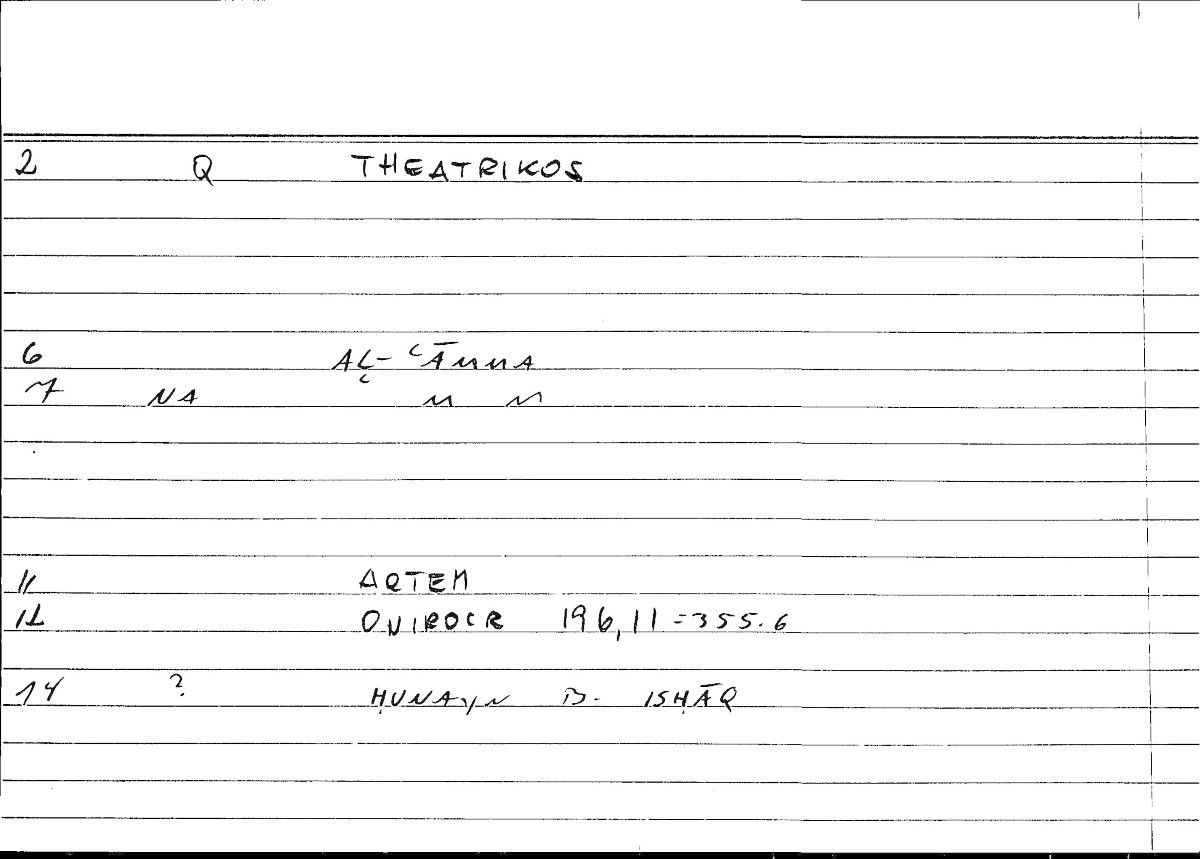 2 Q THEATRIKOS
6 AL- ʿĀMMA
7 NA " "
11 ARTEM
12 ONIROCR 196,11 = 355.6
14 ? ḤUNAYN B. ISḤĀQ